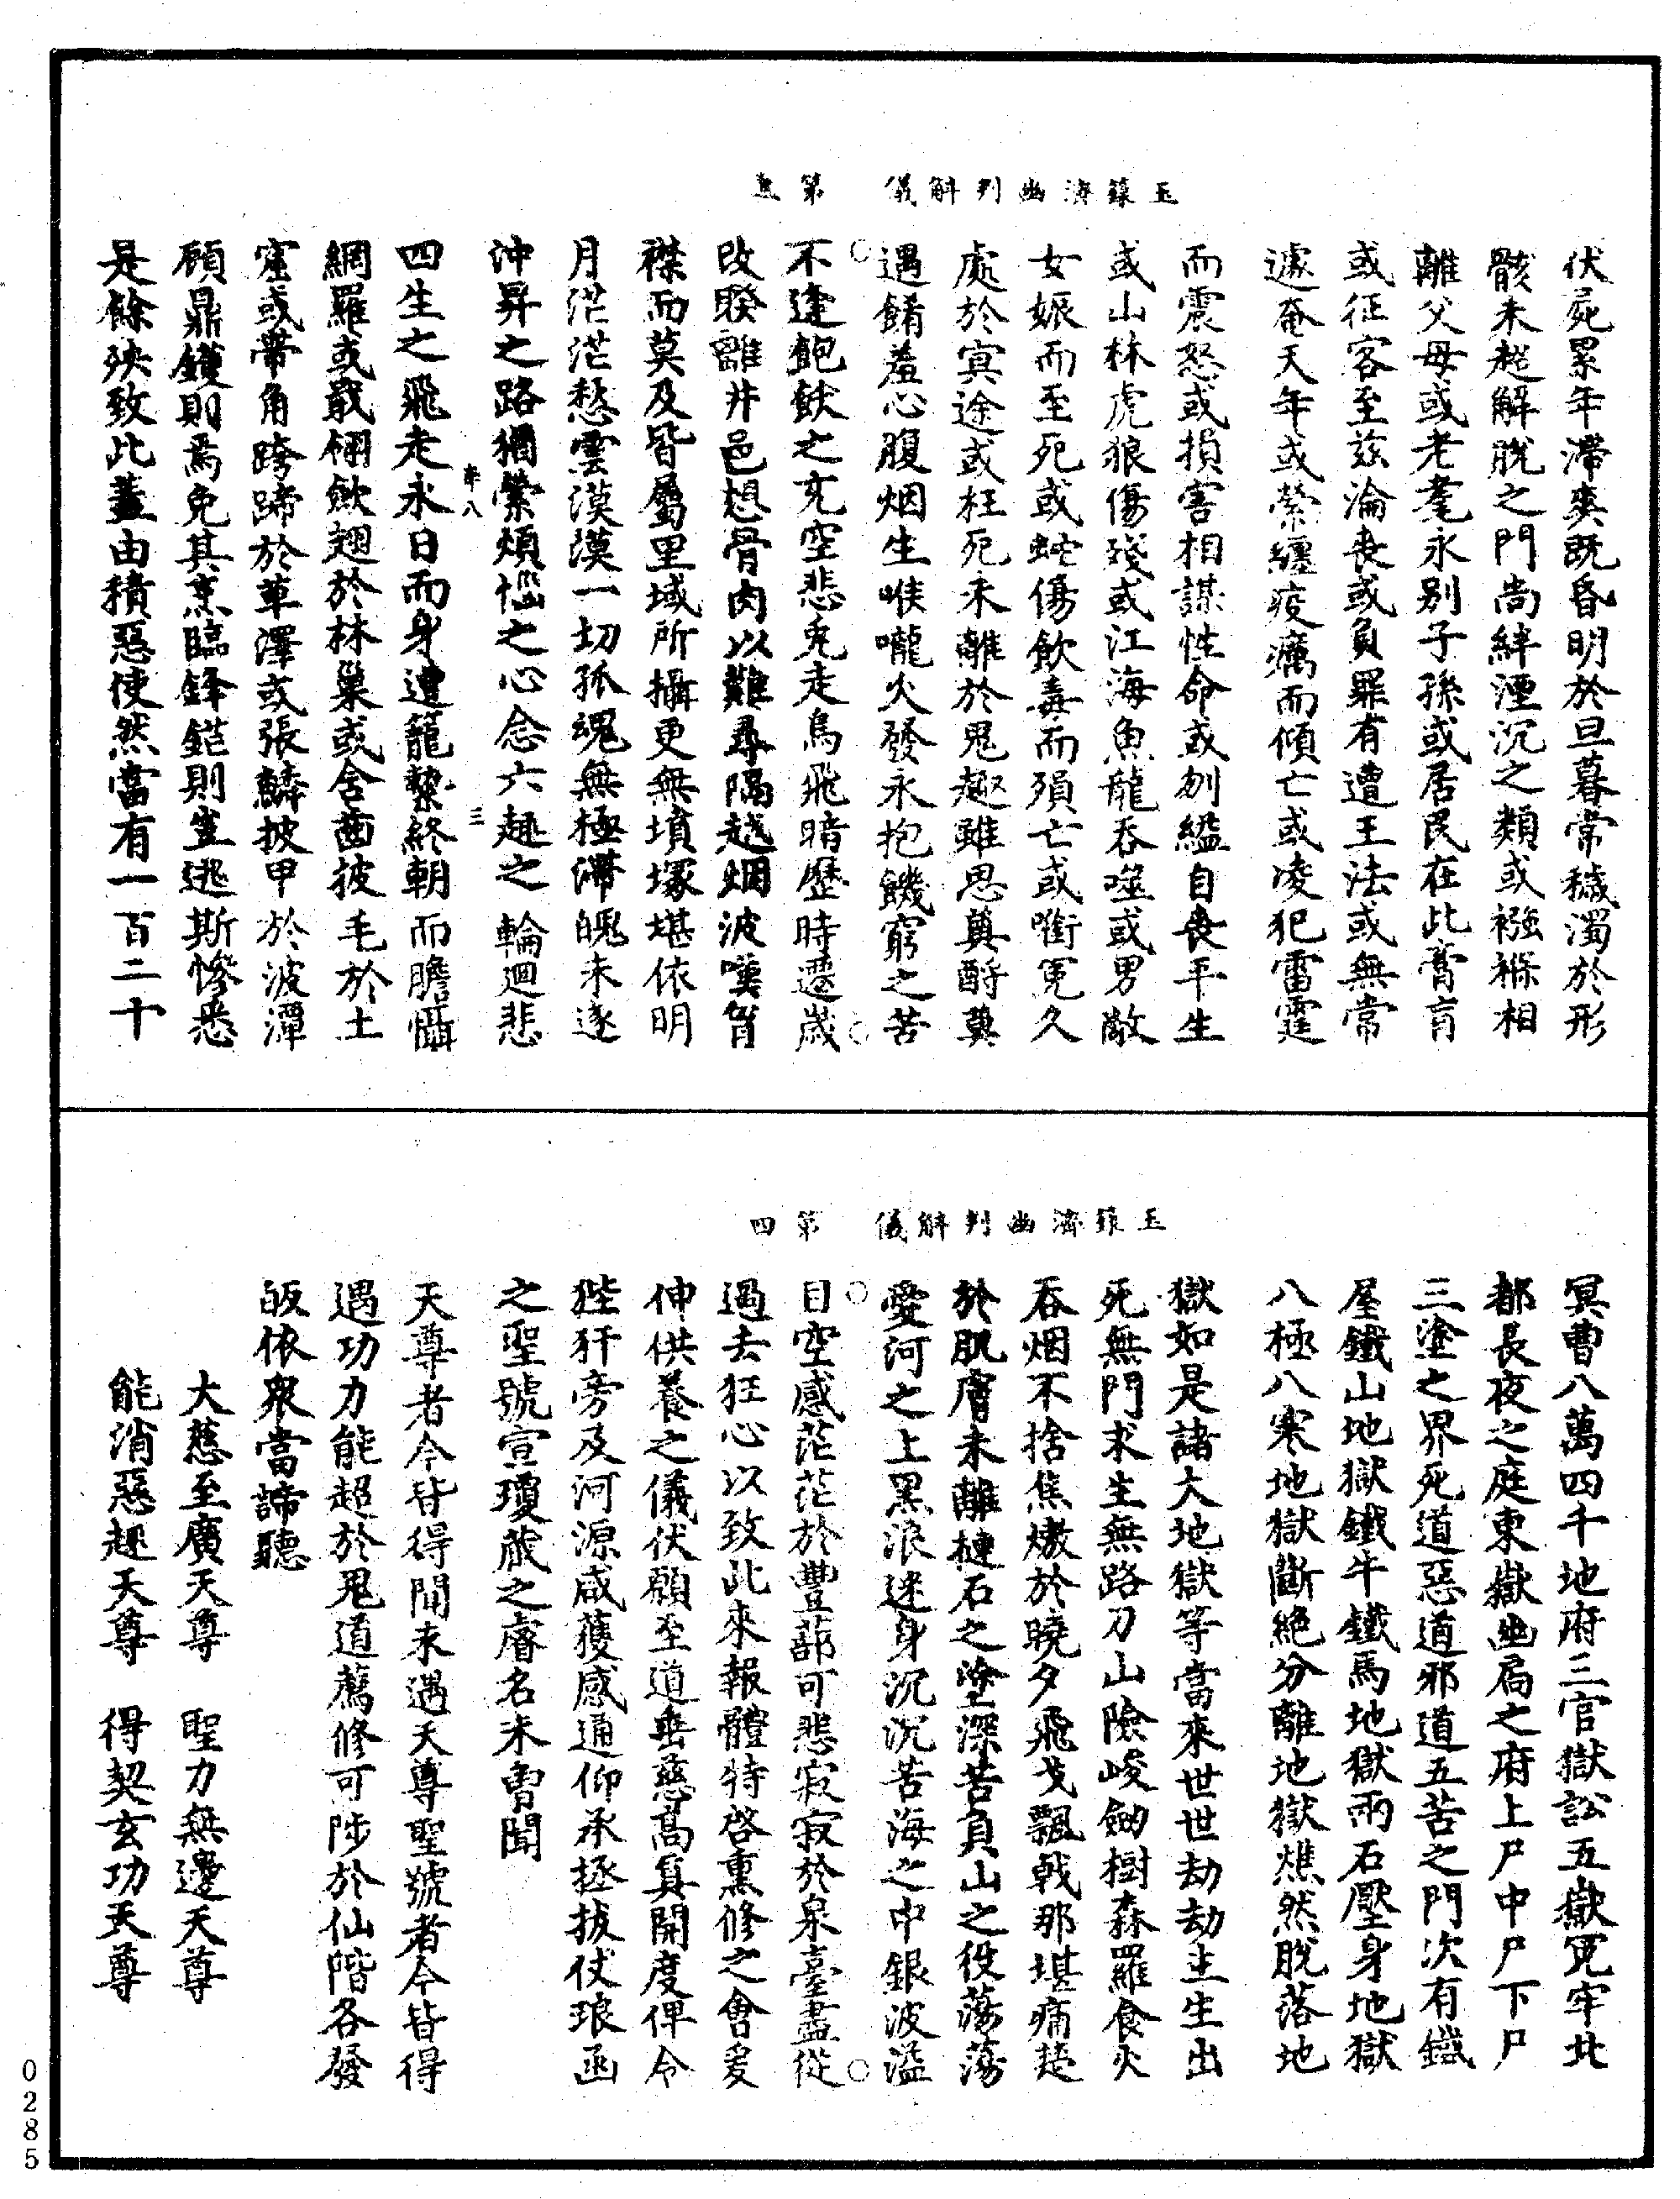 玉籙濟幽判斛儀 第三
伏屍累年滯爽既昏明於旦暮常穢濁於形
骸未超解脫之門尚絆湮沉之類或襁褓相
離父母或老耄永別子孫或居民在此膏肓
或征客至茲淪喪或負罪有遭王法或無常
遽奄天年或縈纏疫癘而傾亡或凌犯雷霆
而震怒或損害相謀性命或刎縊自喪平生
或山林虎狼傷殘或江海魚龍吞噬或男敵
女娠而至死或蛇傷飲毒而殞亡或銜冤久
處於冥途或枉死未離於鬼趣雖思奠酹莫
遇餚羞心腹烟生喉嚨火發永抱饑窮之苦
不逢飽飫之充空悲兔走烏飛暗歷時遷歲
改睽離井邑想骨肉以難尋隔越烟波嘆胷
襟而莫及皆屬里域所攝更無墳塚堪依明
月茫茫愁雲漠漠一切孤魂無極滯魄未逐
沖昇之路猶縈煩惱之心念六趣之輪迴悲
四生之飛走永日而身遭籠縶終朝而膽懾
網羅或戢栩歛翅於林巢或含齒披毛於土
窟或帶角跨蹄於草澤或張鱗披甲於波潭
顧鼎鑊則焉免其烹臨鋒鋩則豈逃斯慘悉
是餘殃致此蓋由積惡使然當有一百二十
率八 三
玉籙濟幽判斛儀 第四
冥曹八萬四千地府三官獄訟五嶽冤牢北
都長夜之庭東嶽幽扃之府上尸中尸下尸
三塗之界死道惡道邪道五苦之門次有鐵
屋鐵山地獄鐵牛鐵馬地獄兩石壓身地獄
八極八寒地獄斷絕分離地獄燋然脫落地
獄如是諸大地獄等當來世世劫劫生生出
死無門求生無路刀山險峻劒樹森羅食火
吞烟不捨焦燉於曉夕飛戈飄戟那堪痛楚
於肌膚未離揵石之塗深苦負山之役蕩蕩
愛河之上黑浪迷身沉沉苦海之中銀波溢
目空感茫茫於豐蔀可悲寂寂於泉臺盡從
過去狂心以致此來報體特啓熏修之會爰
伸供養之儀伏願至道垂慈高真開度俾令
狴犴旁及河源咸獲感通仰承拯拔仗琅函
之聖號宣瓊蔵之睿名未曽聞
天尊者今皆得聞未遇天尊聖號者今皆得
遇功力能超於鬼道薦修可陟於仙階各發
皈依衆當諦聽
大慈至廣天尊 聖力無邊天尊
能消惡趣天尊 得契玄功天尊
0285